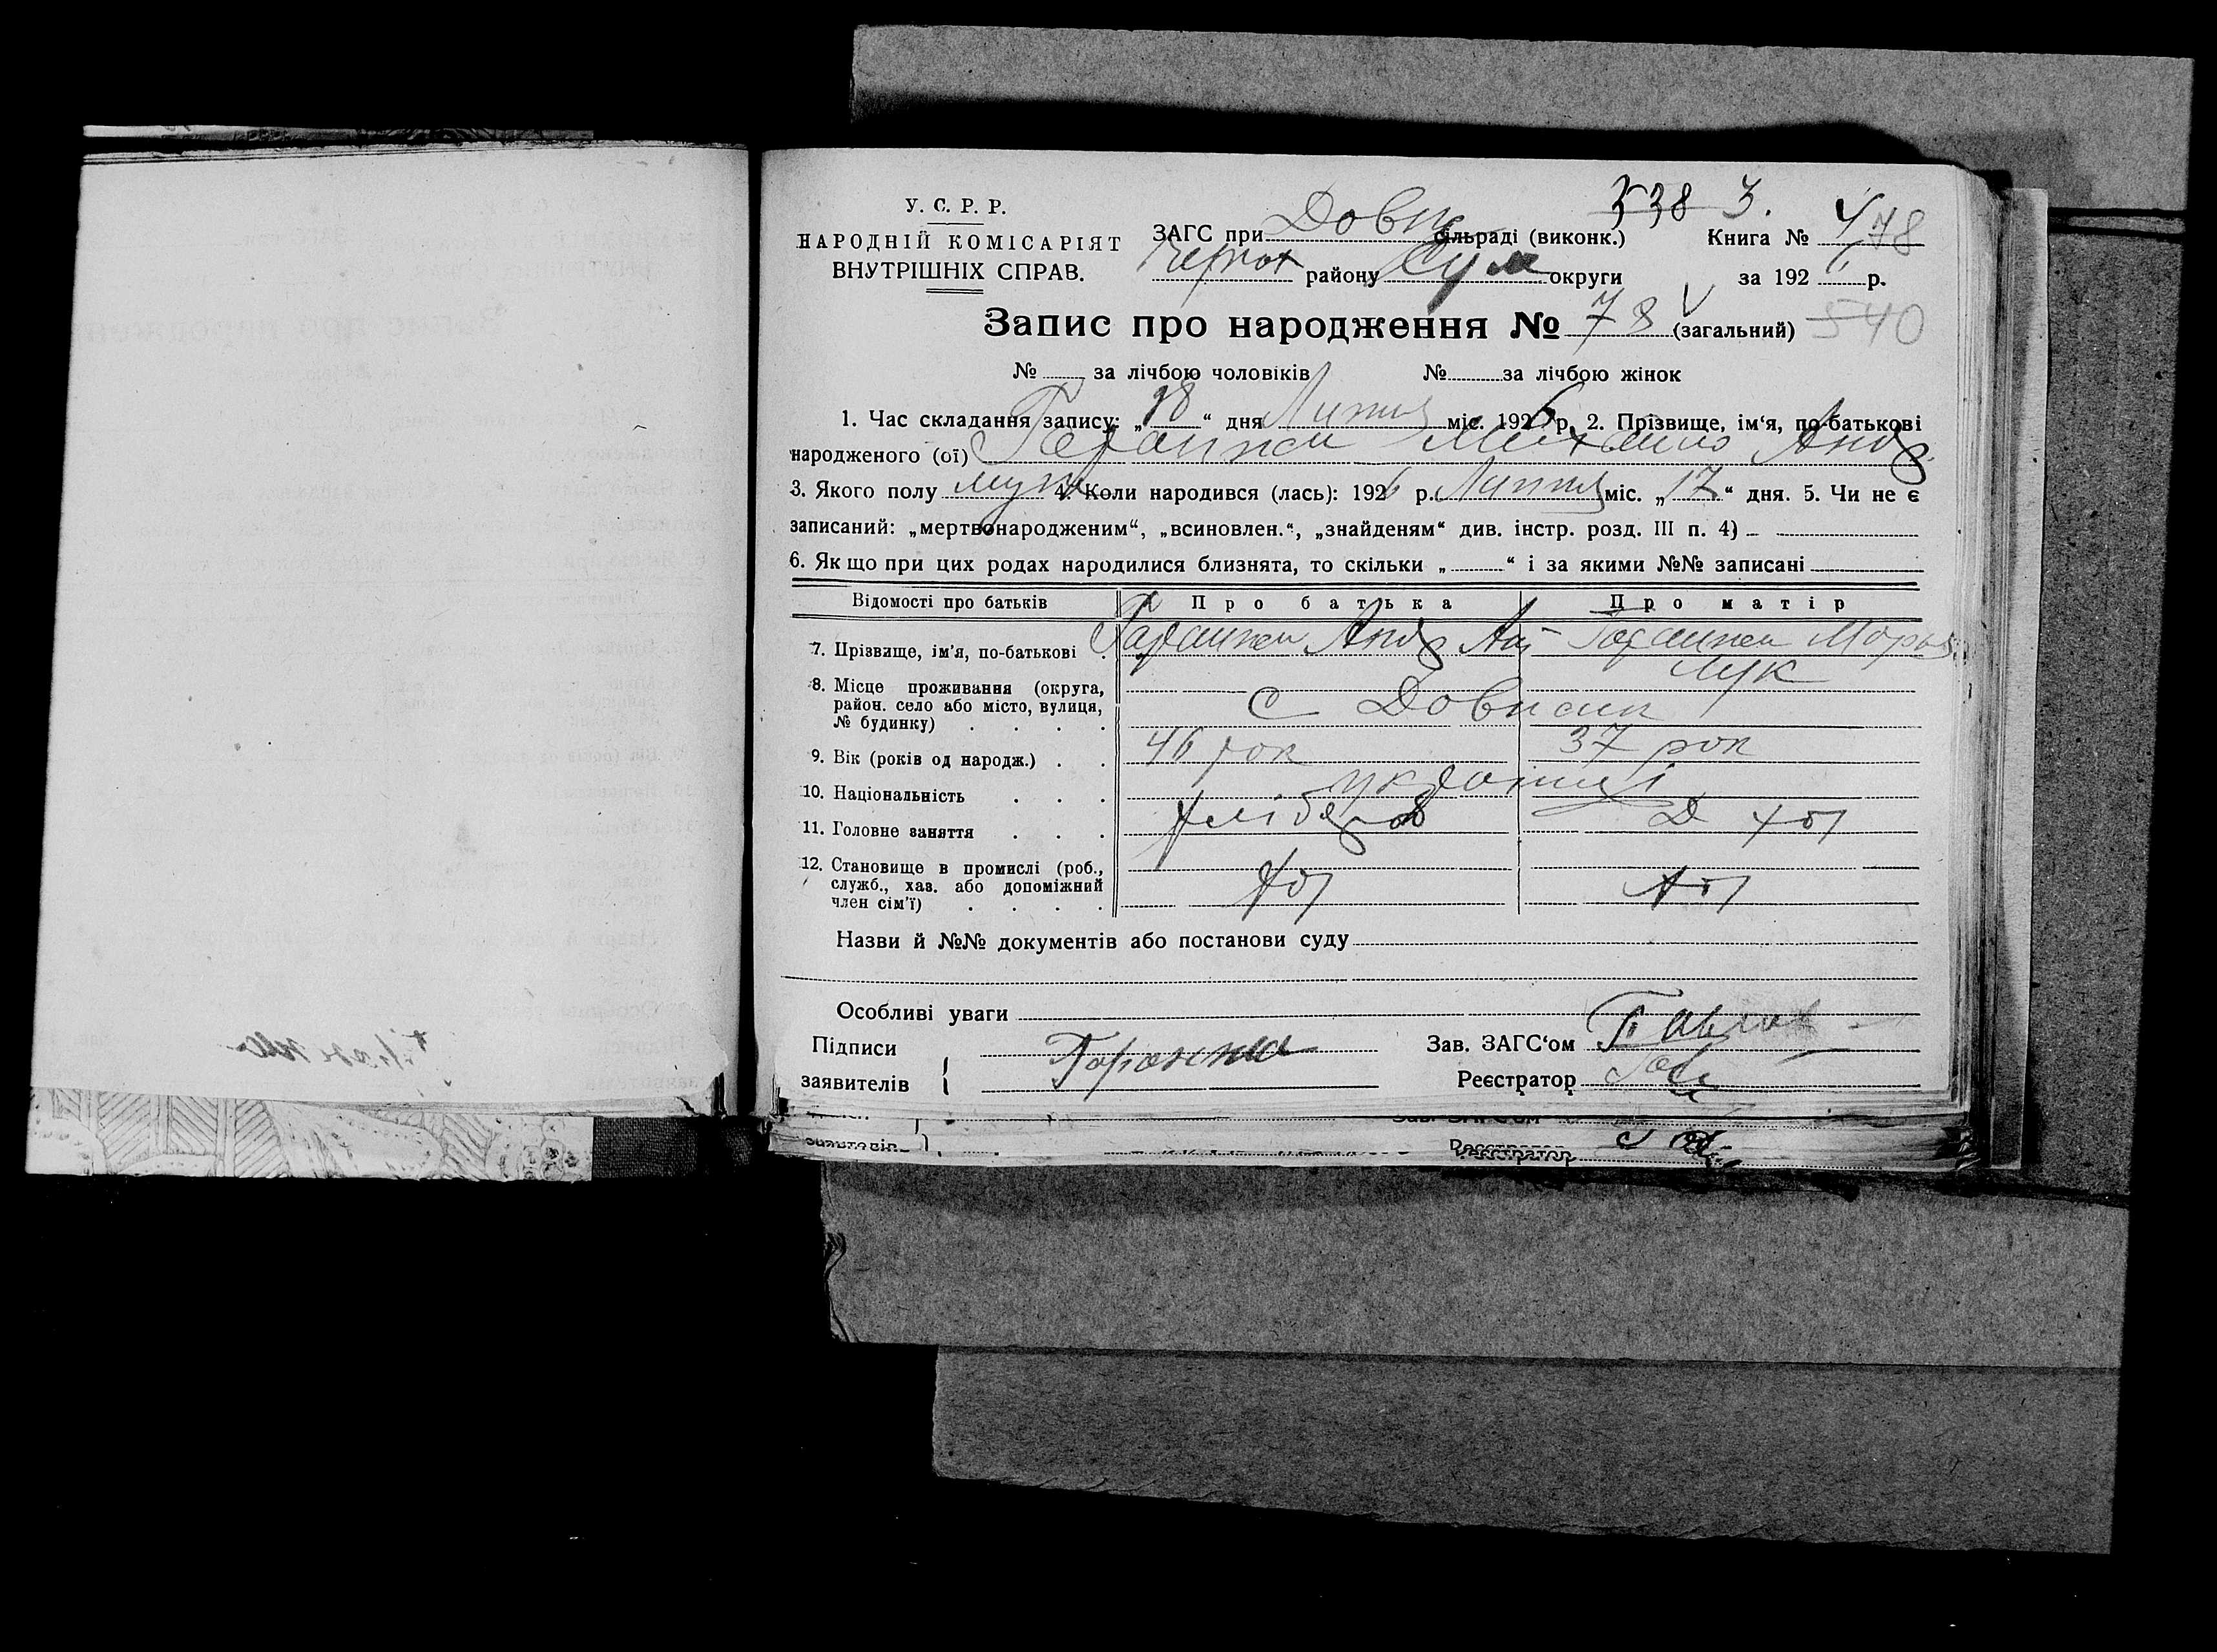 538 3.
У. С. Р. Р.
ЗАГС при Довж сільраді (виконк.) Книга № 4 478
НАРОДНІЙ КОМІСАРІЯТ
ВНУТРІШНІХ СПРАВ.
району Сум округи за 192 р.
Запис про народження № 78 (загальний) 540
№ за лічбою чоловіків № за лічбою жінок
1. Час складання запису: „18“ дня Липня міс. 1926 р. 2. Прізвище, ім‘я, по-батькові
народженого (ої) Гаранжа Михайло Андр.
3. Якого полу муж 4. Коли народився (лась): 1926 р. Липня міс. „17“ дня. 5. Чи не є
записаний: „мертвонародженим“, „всиновлен.“, „знайденям“ див. інстр. розд. III п. 4)
6. Якщо при цих родах народилися близнята, то скільки „ “ і за якими №№ записані
Відомості про батьків Про батька Про матір
7. Прізвище, ім’я, по-батькові Гаранжа Андр Гаранжа Марья
Лук
8. Місце проживання (округа,
район. село або місто, вулиця,
№ будинку) с
9. Вік (років од народж.) 46 рок 37 рок
10. Національність україньці
11. Головне заняття хлібороб Д
12. Становище в промислі (роб.,
служб., хаз. або допоміжний
член сім’ї)
Назви й №№ документів або постанови суду
Особливі уваги
Підписи Гаранжа Зав. ЗАГС‘ом
заявителів Реєстратор
заявителів Реєстратор